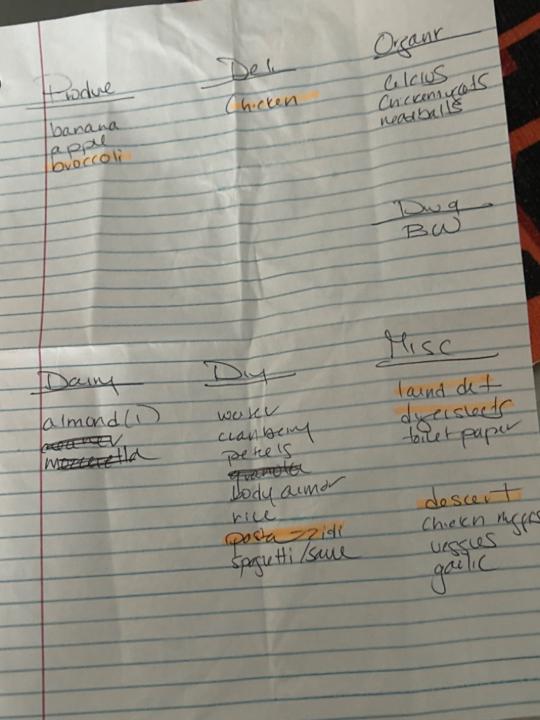 Produe
banana
apple
broccoli
Deli
Chicken
Organr
Celcius
Chicken
meatballs
Drug
BW
Dairy
almond (1)
mozzerella
Dry
water
cranberry
granola
body armor
rice
pasta ziti
spagetti/sauce
Misc
laund det
dryersheets
toilet paper
desert
chicken nuggets
veggies
garlic